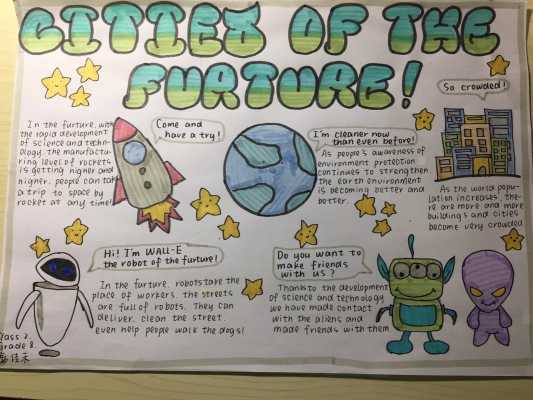 CITIES OF THE
FURTURE!
So crowded!
Come and
have a try!
I'm cleaner now
than even before!
In the furture, with
the rapid development
of science and techn-
ology, the manufactu-
ring level of rockets
is getting higher and
higher. people can take
a trip to space by
rocket at any time!
As people's awareness of
environment protection
continues to strengthen,
the earth environment
is becoming better and
better.
As the world popu-
lation increases, the-
re are more and more
buildings and cities
become very crowded
Hi! I'm WALL-E
the robot of the furture!
Do you want to
make friends
with us?
In the furture, robots take the
place of workers, the streets
are full of robots. They can
deliver, clean the street,
even help people walk the dogs!
Thanks to the development
of science and technology,
we have made contact
with the aliens and
made friends with them
class 2,
grade 8
佳禾